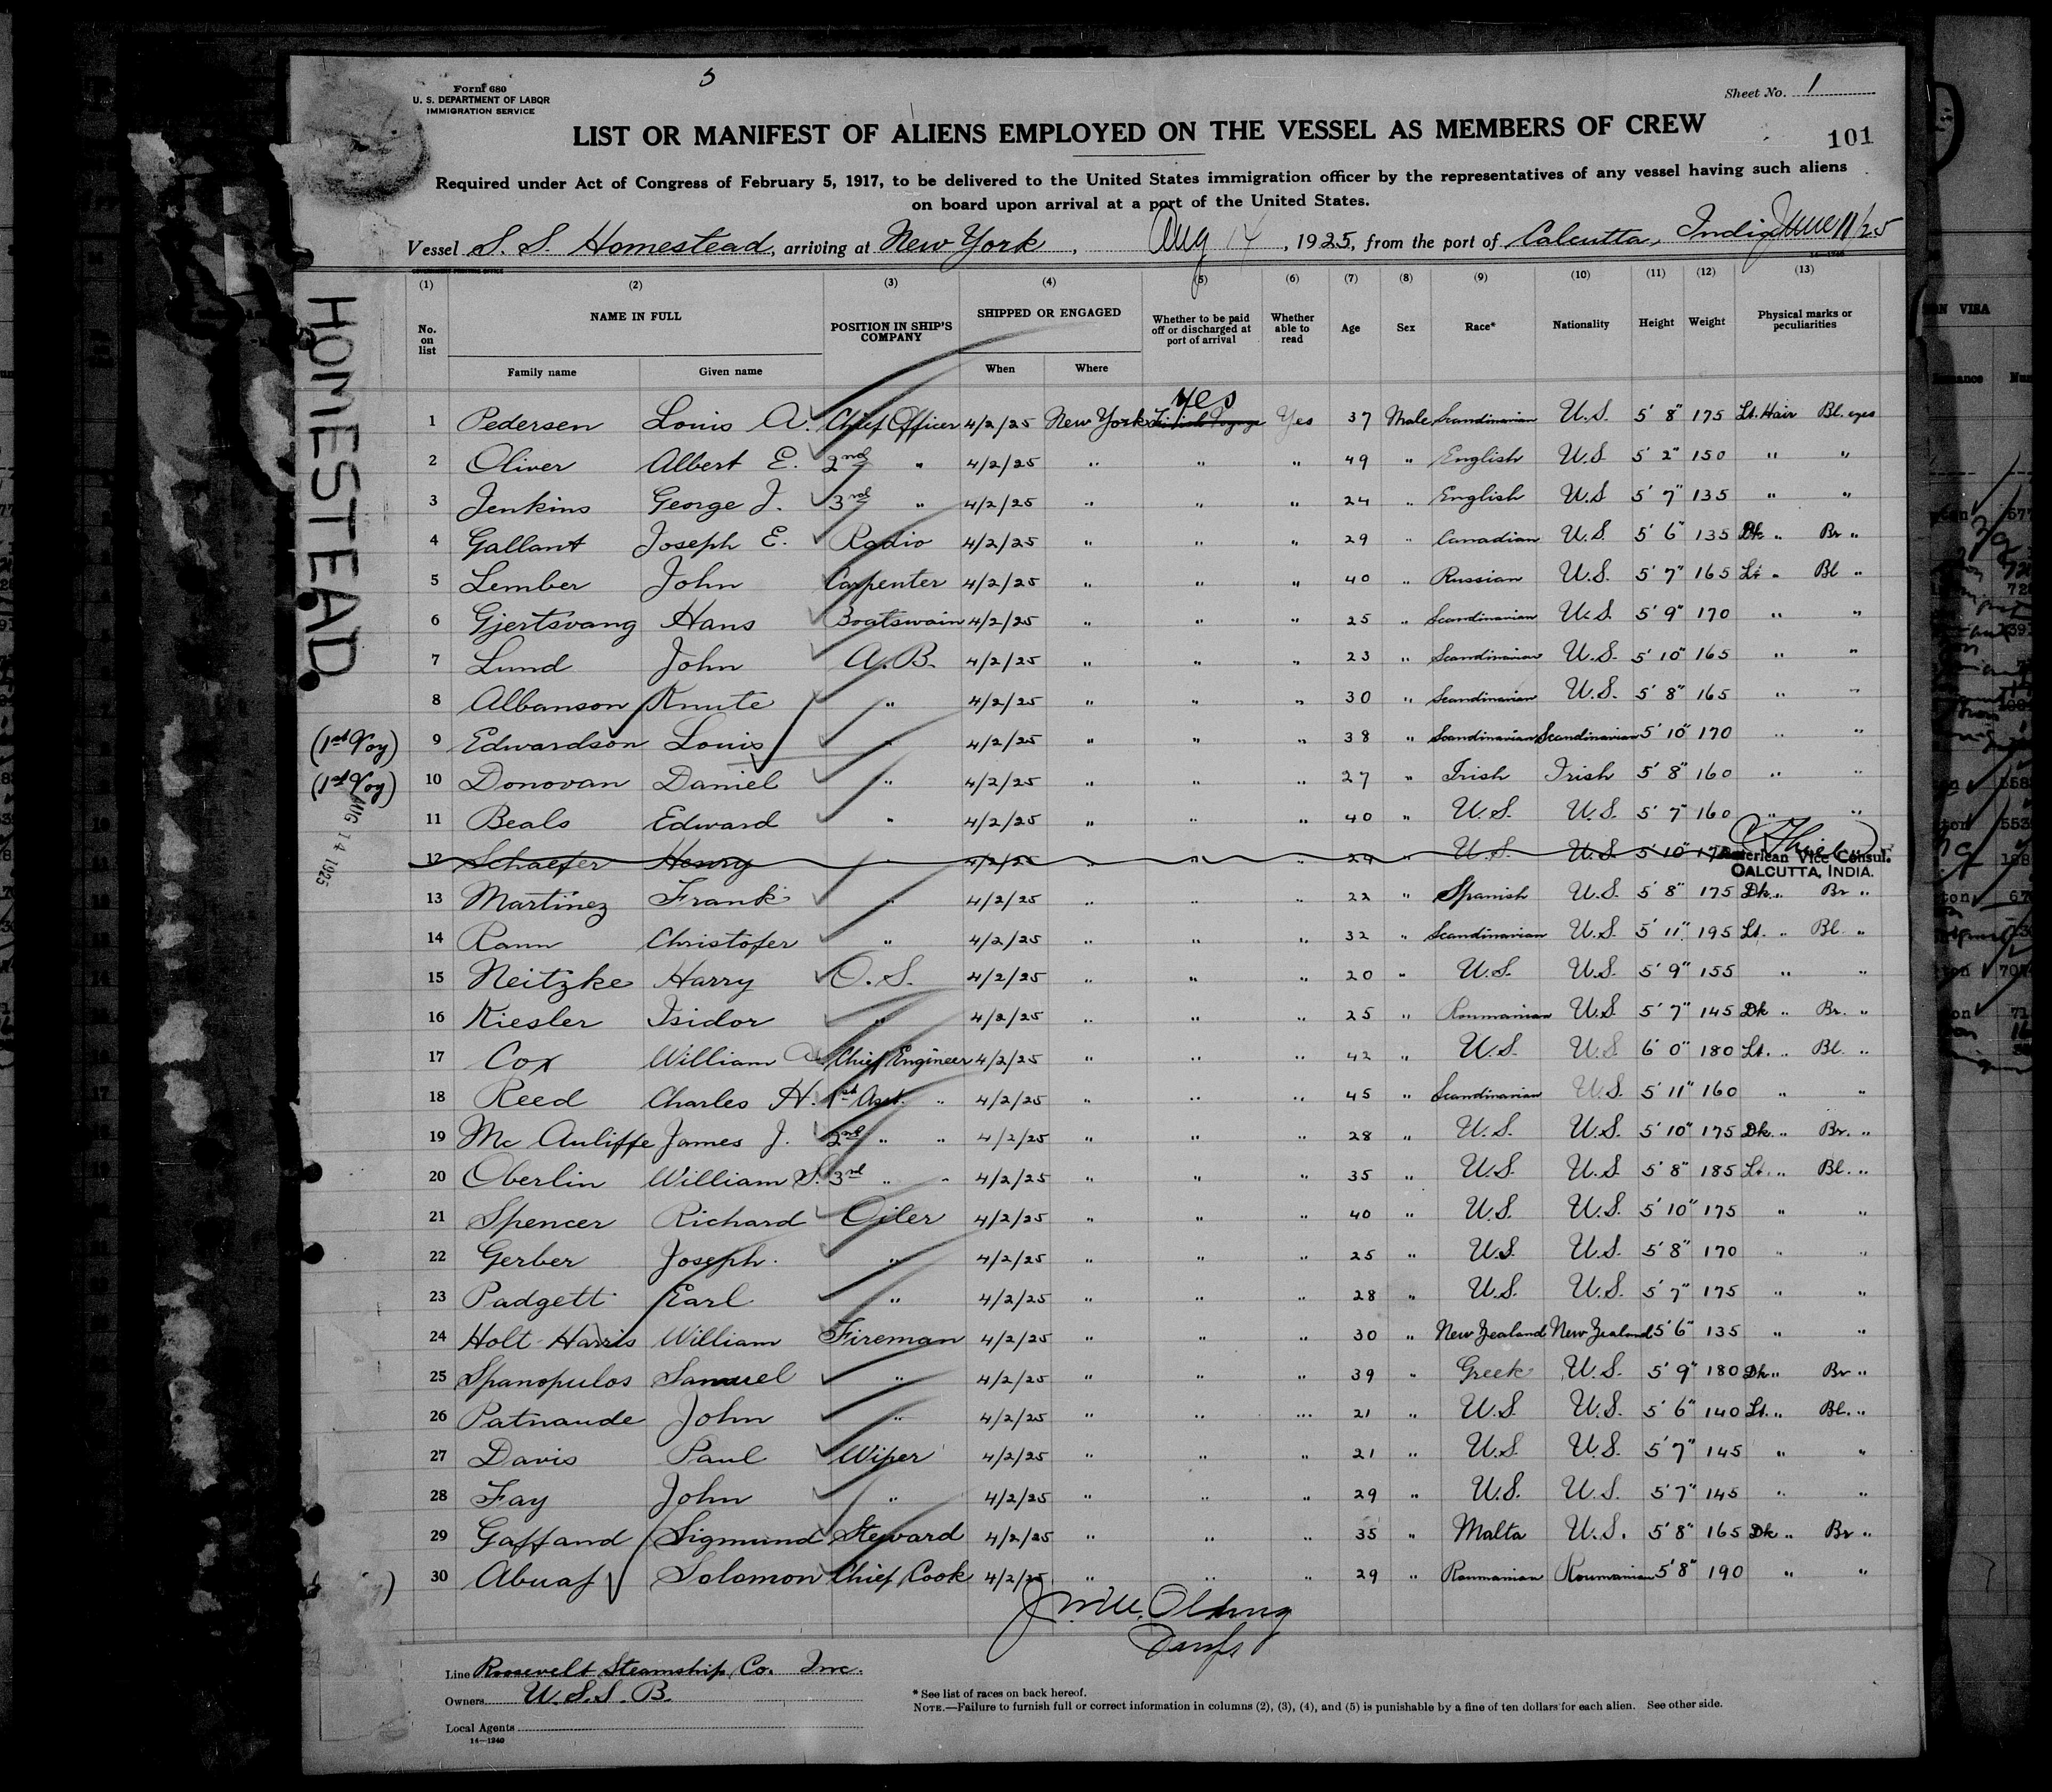 5
Form 680
U. S. DEPARTMENT OF LABOR
IMMIGRATION SERVICE
Sheet No. 1
LIST OR MANIFEST OF ALIENS EMPLOYED ON THE VESSEL AS MEMBERS OF CREW
101
Required under Act of Congress of February 5, 1917, to be delivered to the United States immigration officer by the representatives of any vessel having such aliens
on board upon arrival at a port of the United States.
Vessel S. S. Homestead, arriving at New York, Aug 14, 1925, from the port of Calcutta, India June 11/25
GOVERNMENT PRINTING OFFICE 14—1240
(1) (2) (3) (4) (5) (6) (7) (8) (9) (10) (11) (12) (13)
No. on list NAME IN FULL Family name Given name POSITION IN SHIP'S COMPANY SHIPPED OR ENGAGED When Where Whether to be paid off or discharged at port of arrival Whether able to read Age Sex Race* Nationality Height Weight Physical marks or peculiarities
HOMESTEAD.
yes
1 Pedersen Louis A. Chief Officer 4/2/25 New York Yes 37 Male Scandinavian U.S. 5' 8" 175 Lt. Hair Bl. eyes
2 Oliver Albert E. 2nd " 4/2/25 " " " 49 " English U.S. 5' 2" 150 " "
3 Jenkins George J. 3rd " 4/2/25 " " " 24 " English U.S 5' 7" 135 " "
4 Gallant Joseph E. Radio 4/2/25 " " " 29 " Canadian U.S. 5' 6" 135 Dk " Br "
5 Lember John Carpenter 4/2/25 " " " 40 " Russian U.S. 5' 7" 165 Lt " Bl "
6 Gjertsvang Hans Boatswain 4/2/25 " " " 25 " Scandinavian U.S. 5' 9" 170 " "
7 Lund John A. B. 4/2/25 " " " 23 " Scandinavian U.S. 5' 10" 165 " "
8 Albanson Knute " 4/2/25 " " " 30 " Scandinavian U.S. 5' 8" 165 " "
(1st Voy) 9 Edwardson Louis " 4/2/25 " " " 38 " Scandinavian Scandinavian 5' 10" 170 " "
(1st Voy) 10 Donovan Daniel " 4/2/25 " " " 27 " Irish Irish 5' 8" 160 " "
AUG 14 1925
11 Beals Edward " 4/2/25 " " " 40 " U.S. U.S. 5' 7" 160 " "
12 Schaefer Henry " 4/2/25 " " " " U.S. U.S. 5' 10"
American Vice Consul.
CALCUTTA, INDIA.
13 Martinez Frank " 4/2/25 " " " 22 " Spanish U.S. 5' 8" 175 Dk " Br "
14 Rann Christofer " 4/2/25 " " " 32 " Scandinavian U.S. 5' 11" 195 Lt. " Bl. "
15 Neitzke Harry O. S. 4/2/25 " " " 20 " U.S. U.S. 5' 9" 155 " "
16 Kiesler Isidor " 4/2/25 " " " 25 " Roumanian U.S. 5' 7" 145 Dk " Br. "
17 Cox William A. Chief Engineer 4/2/25 " " " 42 " U.S. U.S 6' 0" 180 Lt. " Bl. "
18 Reed Charles H. 1st Asst. " 4/2/25 " " " 45 " Scandinavian U.S. 5' 11" 160 " "
19 Mc Auliffe James J. 2nd " " 4/2/25 " " " 28 " U.S. U.S. 5' 10" 175 Dk. " Br. "
20 Oberlin William S. 3rd " " 4/2/25 " " " 35 " U.S. U.S. 5' 8" 185 Lt. " Bl. "
21 Spencer Richard Oiler 4/2/25 " " " 40 " U.S. U.S. 5' 10" 175 " "
22 Gerber Joseph. " 4/2/25 " " " 25 " U.S. U.S. 5' 8" 170 " "
23 Padgett Earl " 4/2/25 " " " 28 " U.S. U.S. 5' 7" 175 " "
24 Holt-Harris William Fireman 4/2/25 " " " 30 " New Zealand New Zealand 5' 6" 135 " "
25 Spanopulos Samuel " 4/2/25 " " " 39 " Greek U.S. 5' 9" 180 Dk " Br "
26 Patnaude John " 4/2/25 " " " 21 " U.S. U.S. 5' 6" 140 Lt. " Bl. "
27 Davis Paul Wiper 4/2/25 " " " 21 " U.S. U.S. 5' 7" 145 " "
28 Fay John " 4/2/25 " " " 29 " U.S. U.S. 5' 7" 145 " "
29 Gaffand Sigmund Steward 4/2/25 " " " 35 " Malta U.S. 5' 8" 165 Dk " Br "
30 Abuaf Solomon Chief Cook 4/2/25 " " " 29 " Roumanian Roumanian 5' 8" 190 " "
Line Roosevelt Steamship Co. Inc.
Owners U. S. S. B.
Local Agents
14—1240
* See list of races on back hereof.
NOTE.—Failure to furnish full or correct information in columns (2), (3), (4), and (5) is punishable by a fine of ten dollars for each alien. See other side.